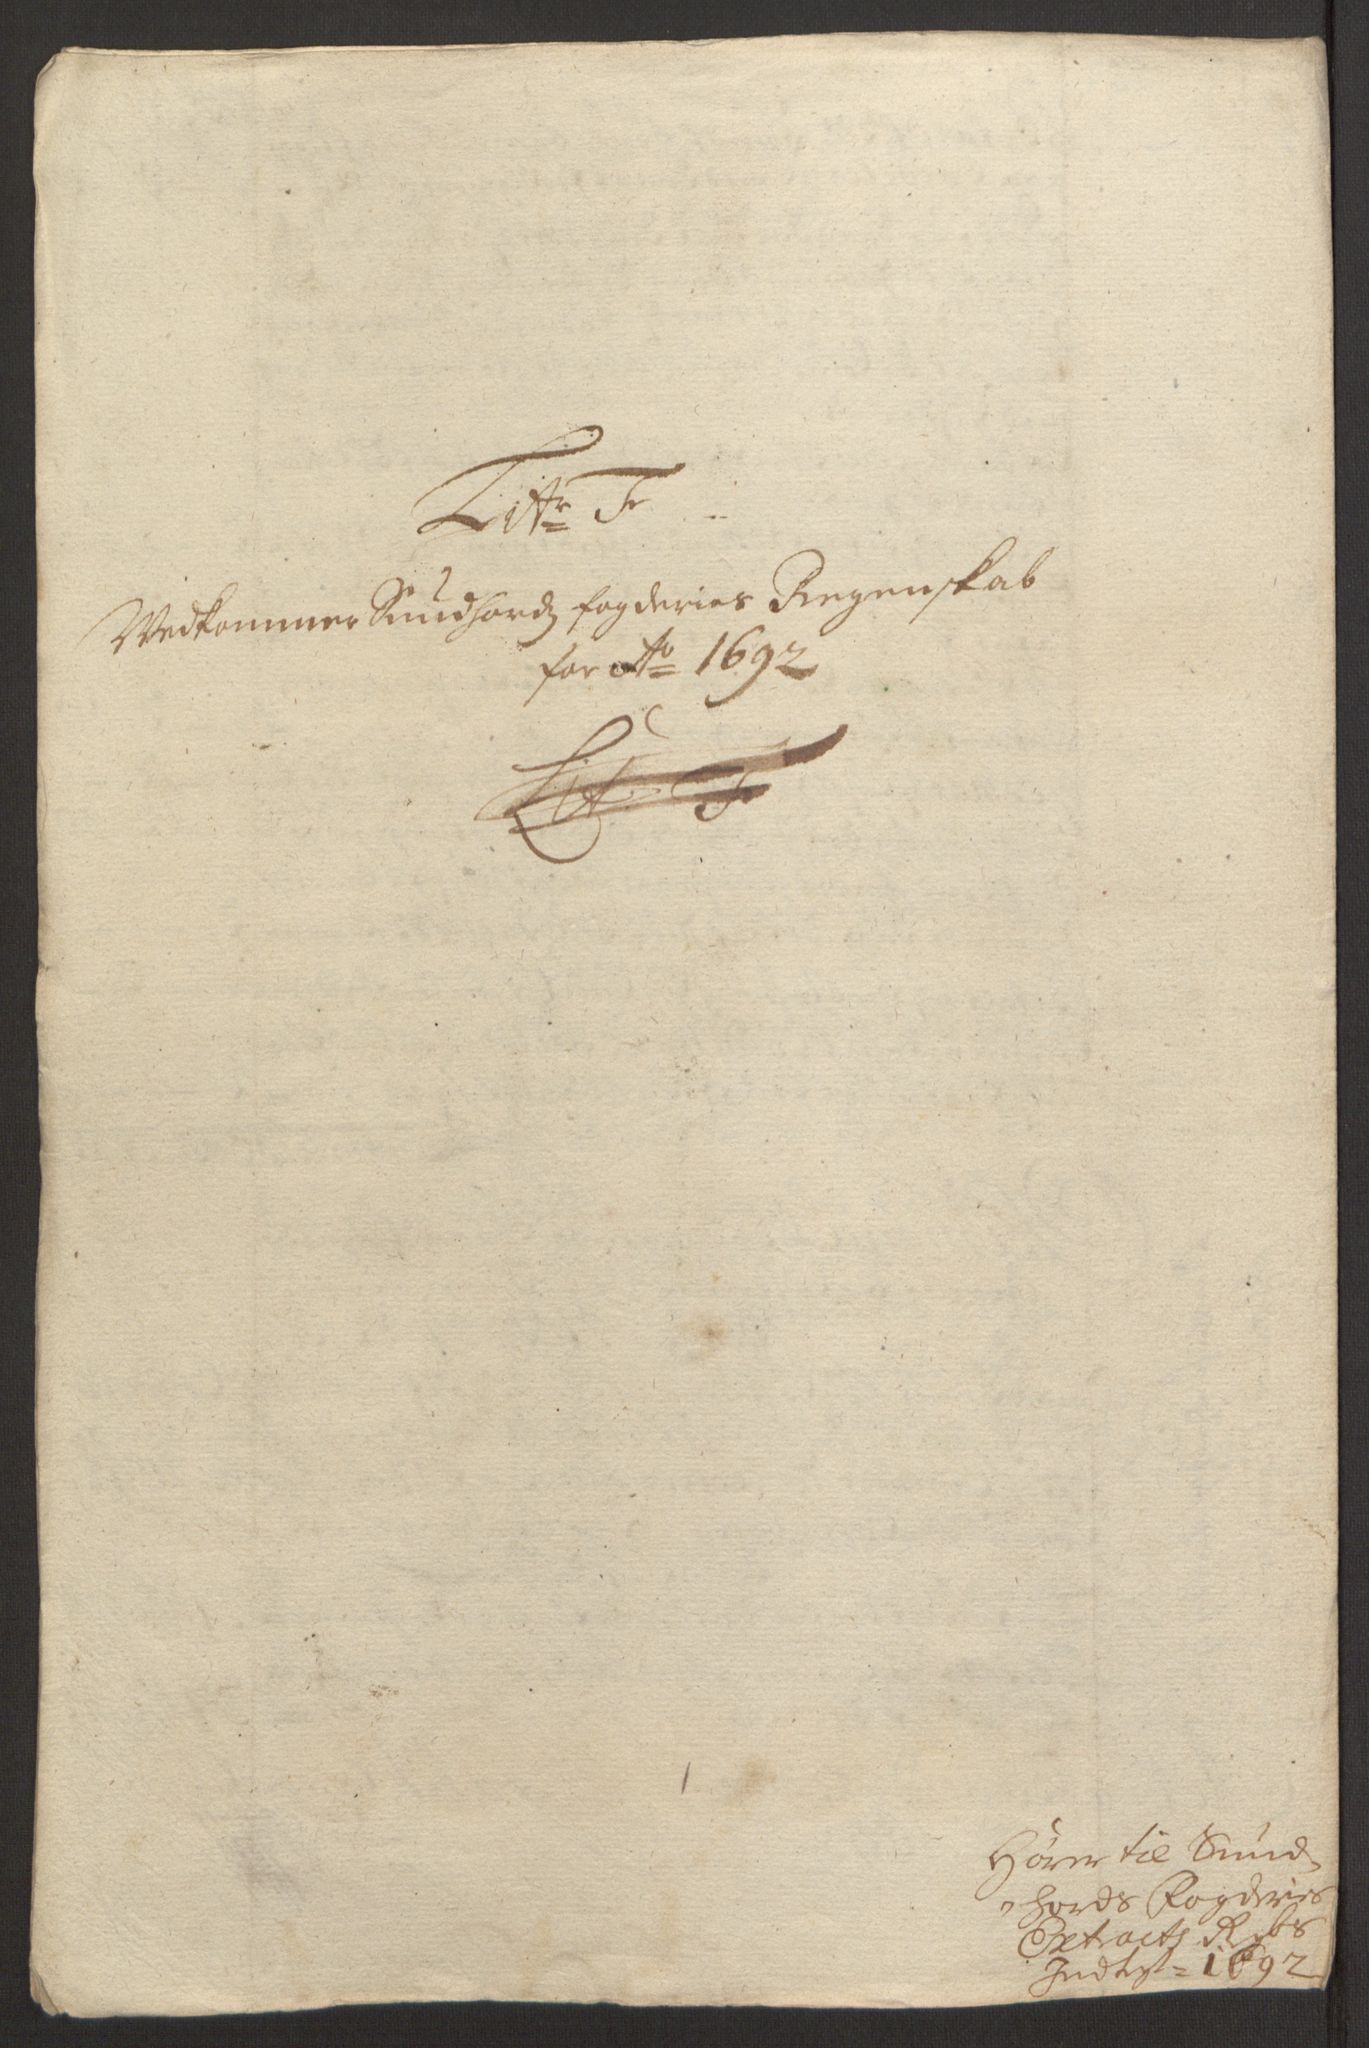 Litr F
Vedkommer Sundhordz fogderies Regenskab
for Ao 1692
Lit. F
1
Hører til Sund
hords Fogderies
Extractz Rgbs
Indtgt 1692